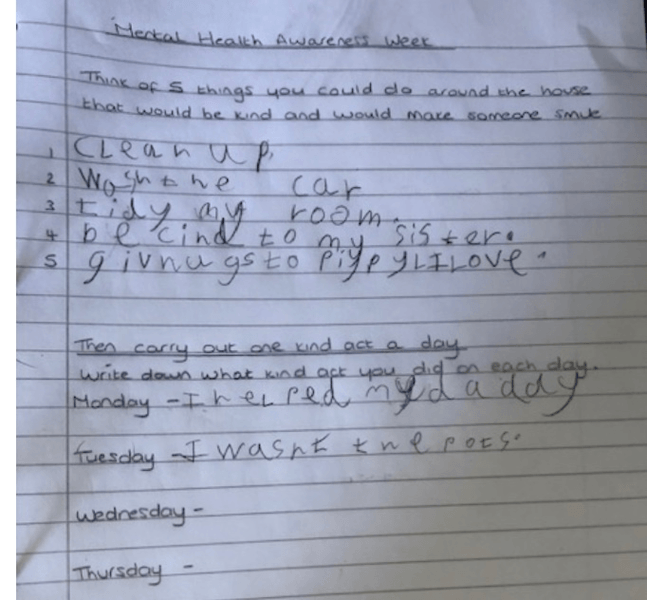 Mental Health Awareness Week
Think of 5 things you could do around the house
that would be kind and would make someone smile
1 CLean up.
2 Wash the car
3 tidy my room.
4 be cind to my sister.
5 giv hugs to piypyL I Love.
Then carry out one kind act a day
Write down what kind act you did on each day.
Monday - I heLped my daddy
Tuesday - I washt the pots.
Wednesday -
Thursday -